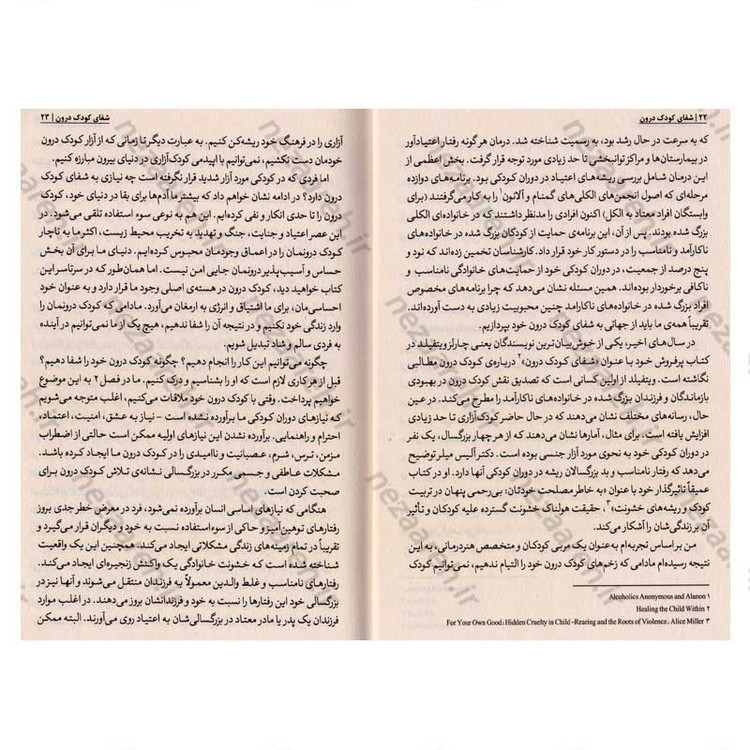 ۲۲ | شفای کودک درون
که به سرعت در حال رشد بود، به رسمیت شناخته شد. درمان هر گونه رفتار اعتیادآور
در بیمارستان‌ها و مراکز توانبخشی تا حد زیادی مورد توجه قرار گرفت. بخش اعظمی از
این درمان شامل بررسی ریشه‌های اعتیاد در دوران کودکی بود. برنامه‌های دوازده
مرحله‌ای که اصول انجمن‌های الکلی‌های گمنام و آلانون۱ را به کار می‌گرفتند (برای
وابستگان افراد معتاد به الکل) اکنون افرادی را مدنظر داشتند که در خانواده‌ای الکلی
بزرگ شده بودند. پس از آن، این برنامه‌ی حمایت از کودکان بزرگ شده در خانواده‌های
ناکارآمد و نامناسب را در دستور کار خود قرار داد. کارشناسان تخمین زده‌اند که نود و
پنج درصد از جمعیت، در دوران کودکی خود از حمایت‌های خانوادگی نامناسب و
ناکافی برخوردار بوده‌اند. همین مسئله نشان می‌دهد که چرا برنامه‌های مخصوص
افراد بزرگ شده در خانواده‌های ناکارامد چنین محبوبیت زیادی به دست آورده‌اند.
تقریباً همه‌ی ما باید از جهانی به شفای کودک درون خود بپردازیم.
در سال‌های اخیر، یکی از خوش‌بیان‌ترین نویسندگان یعنی چارلز ویتفیلد در
کتاب پرفروش خود با عنوان «شفای کودک درون»۲ درباره‌ی کودک درون مطالبی
نگاشته است. ویتفیلد از اولین کسانی است که تصدیق نقش کودک درون در بهبودی
بازماندگان و فرزندان بزرگ شده در خانواده‌های ناکارآمد را مطرح می‌کند. در عین
حال، رسانه‌های مختلف نشان می‌دهند که در حال حاضر کودک‌آزاری تا حد زیادی
افزایش یافته است. برای مثال، آمارها نشان می‌دهند که از هر چهار بزرگسال، یک نفر
در دوران کودکی خود به نحوی مورد آزار جنسی بوده است. دکتر آلیس میلر توضیح
می‌دهد که رفتار نامناسب و بد بزرگسالان ریشه در دوران کودکی آنها دارد. او در کتاب
عمیقاً تأثیرگذار خود با عنوان «به خاطر مصلحت خودتان: بی‌رحمی پنهان در تربیت
کودک و ریشه‌های خشونت»۳، حقیقت هولناک خشونت گسترده علیه کودکان و تأثیر
آن بر زندگی‌شان را آشکار می‌کند.
من بر اساس تجربه‌ام به‌عنوان یک مربی کودکان و متخصص هنردرمانی، به این
نتیجه رسیده‌ام مادامی که زخم‌های کودک درون خود را التیام ندهیم، نمی‌توانیم کودک
Alcoholics Anonymous and Alanon ۱
Healing the Child Within ۲
For Your Own Good: Hidden Cruelty in Child-Rearing and the Roots of Violence. Alice Miller ۳
شفای کودک درون | ۲۳
آزاری را در فرهنگ خود ریشه‌کن کنیم. به عبارت دیگر تا زمانی که از آزار کودک درون
خودمان دست نکشیم، نمی‌توانیم با اپیدمی کودک‌آزاری در دنیای بیرون مبارزه کنیم.
اما فردی که در کودکی مورد آزار شدید قرار نگرفته است چه نیازی به شفای کودک
درون دارد؟ در ادامه نشان خواهم داد که بیشتر ما آدم‌ها برای بقا در دنیای خود، کودک
درون را تا حدی انکار و نفی کرده‌ایم. این هم به نوعی سوء استفاده تلقی می‌شود. در
این عصر اعتیاد و جنایت، جنگ و تهدید به تخریب محیط زیست، اکثر ما به ناچار
کودک درونمان را در اعماق وجودمان محبوس کرده‌ایم. دنیای ما برای آن بخش
حساس و آسیب‌پذیر درونمان جایی امن نیست. اما همان‌طور که در سرتاسر این
کتاب خواهید دید، کودک درون در هسته‌ی اصلی وجود ما قرار دارد و به عنوان خود
احساسی‌مان، برای ما اشتیاق و انرژی به ارمغان می‌آورد. مادامی که کودک درونمان را
وارد زندگی خود نکنیم و در نتیجه آن را شفا ندهیم، هیچ یک از ما نمی‌توانیم در آینده
به فردی سالم و شاد تبدیل شویم.
چگونه می‌توانیم این کار را انجام دهیم؟ چگونه کودک درون خود را شفا دهیم؟
قبل از هر کاری لازم است که او را بشناسیم و درک کنیم. ما در فصل ۲ به این موضوع
خواهیم پرداخت. وقتی با کودک درون خود ملاقات می‌کنیم، اغلب متوجه می‌شویم
که نیازهای دوران کودکی ما برآورده نشده است – نیاز به عشق، امنیت، اعتماد،
احترام و راهنمایی. برآورده نشدن این نیازهای اولیه ممکن است حالتی از اضطراب
مزمن، ترس، شرم، عصبانیت و ناامیدی را در کودک درون ما ایجاد کرده باشد.
مشکلات عاطفی و جسمی مکرر در بزرگسالی نشانه‌ی تلاش کودک درون برای
صحبت کردن است.
هنگامی که نیازهای اساسی انسان برآورده نمی‌شود، فرد در معرض خطر جدی بروز
رفتارهای توهین‌آمیز و حاکی از سوء استفاده نسبت به خود و دیگران قرار می‌گیرد و
تقریباً در تمام زمینه‌های زندگی مشکلاتی ایجاد می‌کند. همچنین این یک واقعیت
شناخته شده است که خشونت خانوادگی یک واکنش زنجیره‌ای ایجاد می‌کند.
رفتارهای نامناسب و غلط والدین معمولاً به فرزندان منتقل می‌شوند و آنها نیز در
بزرگسالی خود این رفتارها را نسبت به خود و فرزندانشان بروز می‌دهند. در اغلب موارد
فرزندان یک پدر یا مادر معتاد در بزرگسالی‌شان به اعتیاد روی می‌آورند. البته ممکن
nezaareh.ir